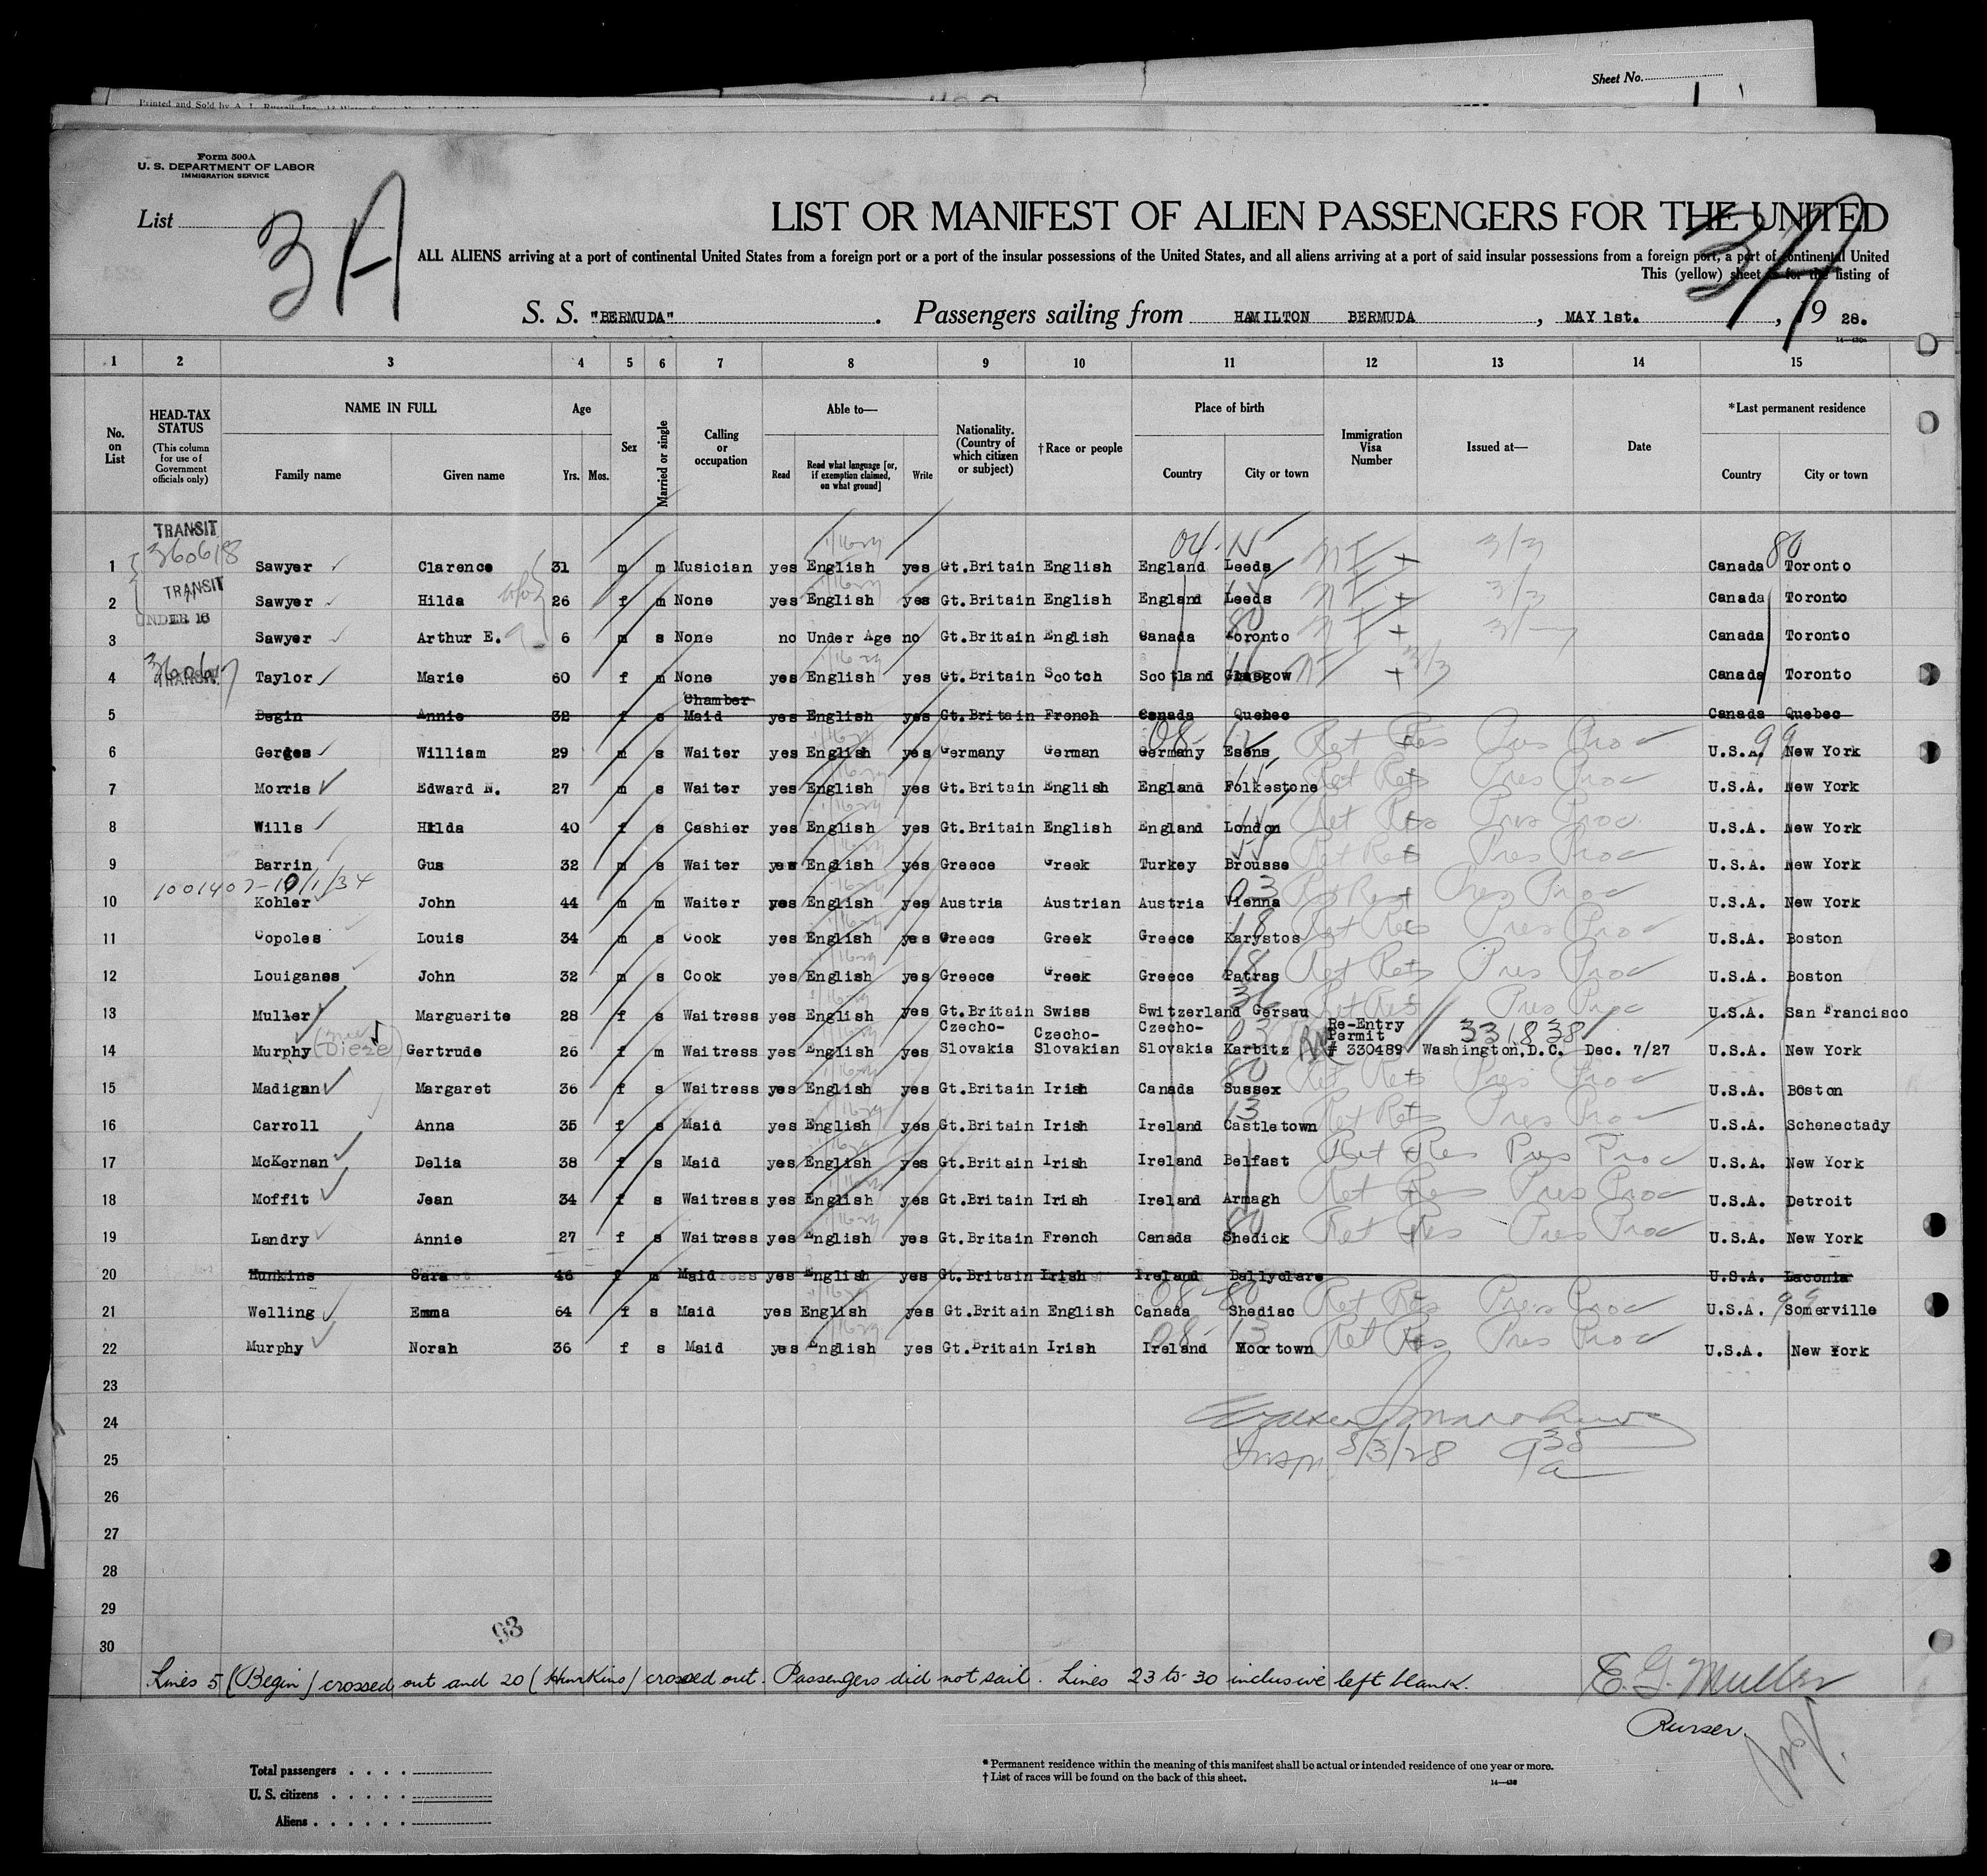 Sheet No.
Printed and Sold by A. L. Russell, Inc.
Form 500A
U. S. DEPARTMENT OF LABOR
IMMIGRATION SERVICE
List 3A
LIST OR MANIFEST OF ALIEN PASSENGERS FOR THE UNITED
ALL ALIENS arriving at a port of continental United States from a foreign port or a port of the insular possessions of the United States, and all aliens arriving at a port of said insular possessions from a foreign port, a port of continental United
This (yellow) sheet is for the listing of
S. S. "BERMUDA". Passengers sailing from HAMILTON BERMUDA, MAY 1st., 19 28.
1 2 3 4 5 6 7 8 9 10 11 12 13 14 15
No. on List
HEAD-TAX STATUS (This column for use of Government officials only)
NAME IN FULL Family name Given name
Age Yrs. Mos.
Sex
Married or single
Calling or occupation
Able to— Read Read what language [or, if exemption claimed, on what ground] Write
Nationality. (Country of which citizen or subject)
†Race or people
Place of birth Country City or town
Immigration Visa Number
Issued at—
Date
*Last permanent residence Country City or town
TRANSIT
360618
1 Sawyer Clarence 31 m m Musician yes English yes Gt.Britain English England Leeds Canada Toronto
TRANSIT
2 Sawyer Hilda 26 f m None yes English yes Gt.Britain English England Leeds Canada Toronto
UNDER 16
3 Sawyer Arthur E. 6 m s None no Under Age no Gt.Britain English Canada Toronto Canada Toronto
360617
TRANSIT
4 Taylor Marie 60 f m None yes English yes Gt.Britain Scotch Scotland Glasgow Canada Toronto
5 Begin Annie 32 f s Chamber Maid yes English yes Gt.Britain French Canada Quebec Canada Quebec
6 Gerdes William 29 m s Waiter yes English yes Germany German Germany Esens Ret Res Pres Proc U.S.A. New York
7 Morris Edward N. 27 m s Waiter yes English yes Gt.Britain English England Folkestone Ret Res Pres Proc U.S.A. New York
8 Wills Hilda 40 f s Cashier yes English yes Gt.Britain English England London Ret Res Pres Proc U.S.A. New York
9 Barrin Gus 32 m s Waiter yes English yes Greece Greek Turkey Brousse Ret Res Pres Proc U.S.A. New York
1001407-10/1/34
10 Kohler John 44 m m Waiter yes English yes Austria Austrian Austria Vienna Ret Res Pres Proc U.S.A. New York
11 Copoles Louis 34 m s Cook yes English yes Greece Greek Greece Karystos Ret Res Pres Proc U.S.A. Boston
12 Louiganes John 32 m s Cook yes English yes Greece Greek Greece Patras Ret Res Pres Proc U.S.A. Boston
13 Muller Marguerite 28 f s Waitress yes English yes Gt.Britain Swiss Switzerland Gersau Ret Res Pres Proc U.S.A. San Francisco
14 Murphy Gertrude 26 f m Waitress yes English yes Czecho-Slovakia Czecho-Slovakian Czecho-Slovakia Karbitz Re-Entry Permit # 330489 331838 Washington, D.C. Dec. 7/27 U.S.A. New York
15 Madigan Margaret 36 f s Waitress yes English yes Gt.Britain Irish Canada Sussex Ret Res Pres Proc U.S.A. Boston
16 Carroll Anna 35 f s Maid yes English yes Gt.Britain Irish Ireland Castletown Ret Res Pres Proc U.S.A. Schenectady
17 McKernan Delia 38 f s Maid yes English yes Gt.Britain Irish Ireland Belfast Ret Res Pres Proc U.S.A. New York
18 Moffit Jean 34 f s Waitress yes English yes Gt.Britain Irish Ireland Armagh Ret Res Pres Proc U.S.A. Detroit
19 Landry Annie 27 f s Waitress yes English yes Gt.Britain French Canada Shedick Ret Res Pres Proc U.S.A. New York
20 Hunkins Sara 46 f m Maid yes English yes Gt.Britain Irish Ireland Ballyclare U.S.A. Laconia
21 Welling Emma 64 f s Maid yes English yes Gt.Britain English Canada Shediac Ret Res Pres Proc U.S.A. Somerville
22 Murphy Norah 36 f s Maid yes English yes Gt.Britain Irish Ireland Moortown Ret Res Pres Proc U.S.A. New York
23
24
25 Insp. 5/3/28 9 30 a
26
27
28
29
30
93
Lines 5 (Begin) crossed out and 20 (Hunkins) crossed out. Passengers did not sail. Lines 23 to 30 inclusive left blank.
E. G. Muller
Purser.
Total passengers
U. S. citizens
Aliens
* Permanent residence within the meaning of this manifest shall be actual or intended residence of one year or more.
† List of races will be found on the back of this sheet.
14—430